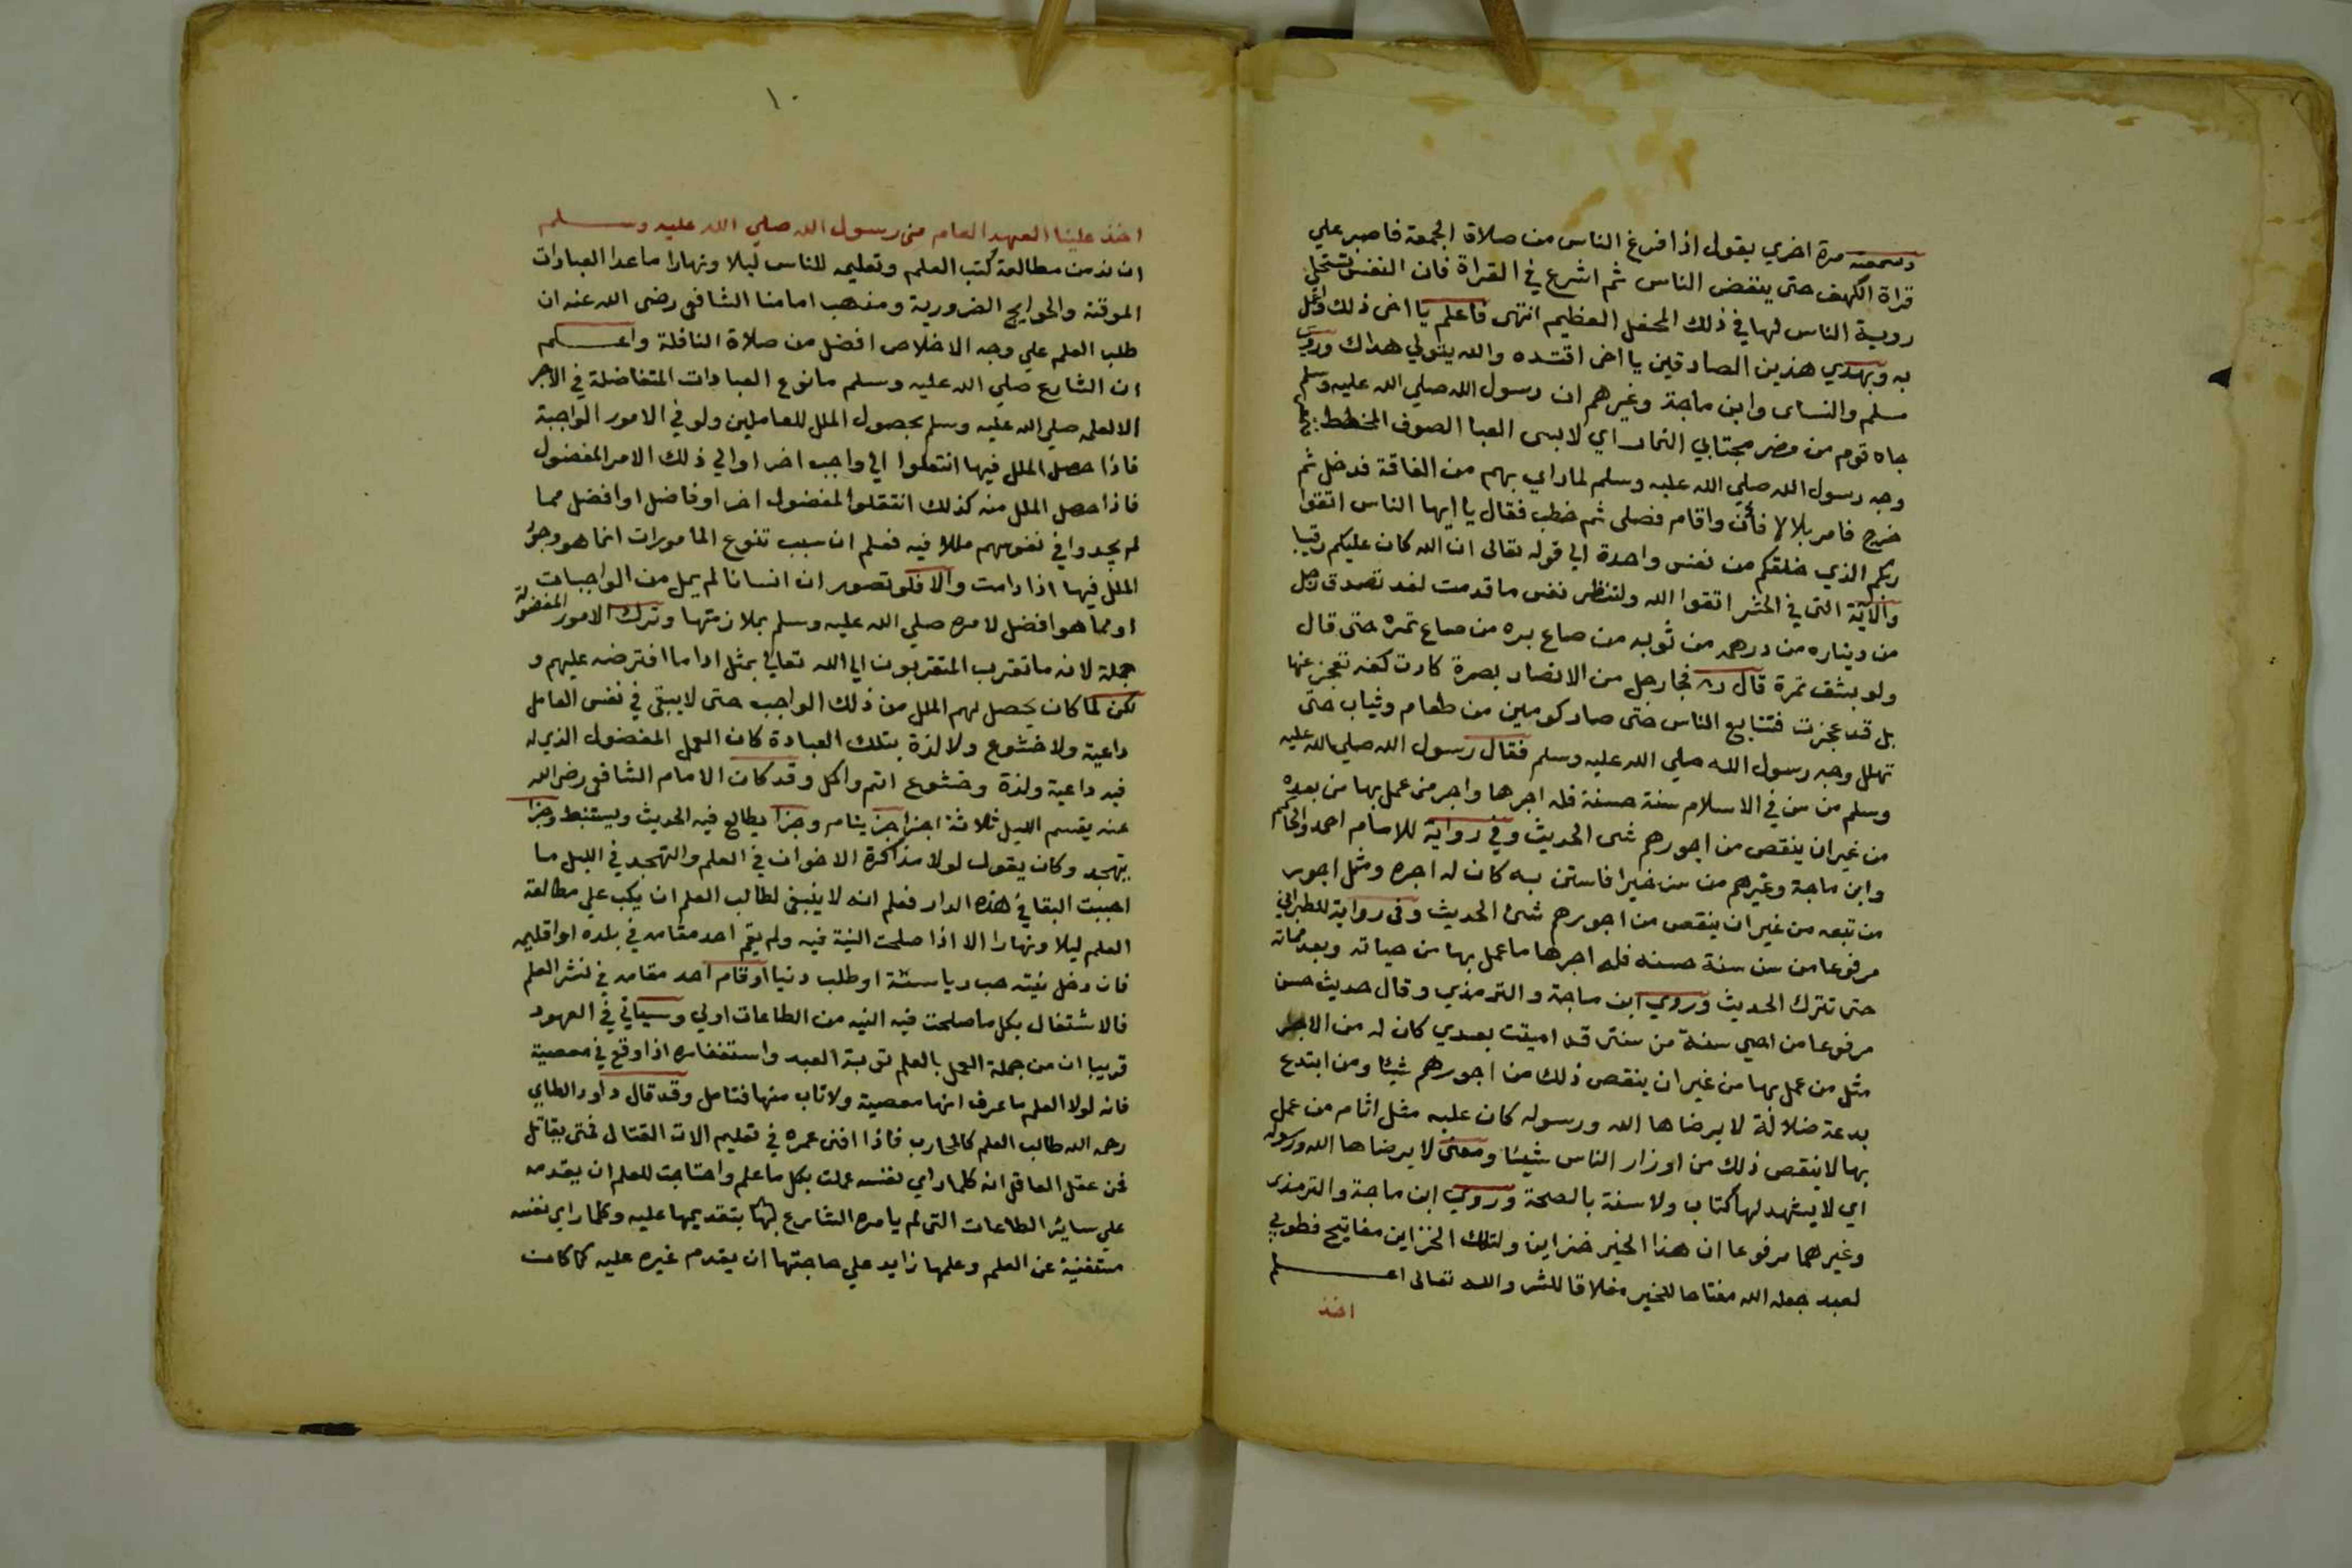 وسمعته مرة اخري يقول اذا فرغ الناس من صلاة الجمعة فاصبر علي
قراة الكهف حتى ينفض الناس ثم اشرع في القراة فان النفس تستحلي
روية الناس لها في ذلك المحفل العظيم انتهى فاعلم يا اخى ذلك واعمل
به وبهدي هذين الصادقين يا اخى اقتده والله يتولي هداك وروى
مسلم والنساى وابن ماجة وغيرهم ان رسول الله صلي الله عليه وسلم
جاه قوم من مضر مجتابي النمار اي لابسى العبا الصوف المخطط
وجه رسول الله صلي الله عليه وسلم لما راي بهم من الفاقة فدخل ثم
خرج فامر بلالا فأذن واقام فصلى ثم خطب فقال يا ايها الناس اتقوا
ربكم الذي خلقكم من نفس واحدة الي قوله تعالى ان الله كان عليكم رقيبا
والآية التى في الحشر اتقوا الله ولتنظر نفس ما قدمت لغد تصدق رجل
من ديناره من درهمه من ثوبه من صاع بره من صاع تمره حتى قال
ولو بشق تمرة قال فجا رجل من الانصار بصرة كادت كفه تعجز عنها
بل قد عجزت فتتابع الناس حتى صار كومين من طعام وثياب حتى
تهلل وجه رسول الله صلي الله عليه وسلم فقال رسول الله صلي الله عليه
وسلم من سن في الاسلام سنة حسنة فله اجرها واجر من عمل بها من بعده
من غير ان ينقص من اجورهم شى الحديث وفي رواية للامام احمد والحاكم
وابن ماجة وغيرهم من سن خيرا فاستن به كان له اجره ومثل اجور
من تبعه من غير ان ينقص من اجورهم شئ الحديث وفى رواية للطبراني
مرفوعا من سن سنة حسنه فله اجرها ما عمل بها من حياته وبعد مماته
حتى تترك الحديث وروي ابن ماجة والترمذي وقال حديث حسن
مرفوعا من احيي سنة من سنتى قد اميتت بعدي كان له من الاجر
مثل من عمل بها من غير ان ينقص ذلك من اجورهم شيئا ومن ابتدع
بدعة ضلالة لا يرضاها الله ورسوله كان عليه مثل اثام من عمل
بها لا ينقص ذلك من اوزار الناس شيئا ومعنى لا يرضاها الله ورسوله
اي لا يشهد لها كتاب ولا سنة بالصحة وروي ابن ماجة والترمذى
وغيرهما مرفوعا ان هذا الخير خزاين ولتلك الخزاين مفاتيح فطوبي
لعبد جعله الله مفتاحا للخير مغلاقا للشر والله تعالى اعلم
اخذ
١٠
اخذ علينا العهد العام من رسول الله صلي الله عليه وسلم
ان ندمن مطالعة كتب العلم وتعليمه للناس ليلا ونهارا ما عدا العبادات
الموقتة والحوايج الضرورية ومذهب امامنا الشافعى رضى الله عنه ان
طلب العلم علي وجه الاخلاص افضل من صلاة النافلة واعلم
ان الشارع صلي الله عليه وسلم ما نوع العبادات المتفاضلة في الاجر
الا لعلمه صلي الله عليه وسلم بحصول الملل للعاملين ولو في الامور الواجبة
فاذا حصل الملل فيها انتقلوا الي واجب اخر او الي ذلك الامر المفضول
فاذا حصل الملل منه كذلك انتقلوا لمفضول اخر او فاضل او افضل مما
لم يجدوا في نفوسهم مللا فيه فعلم ان سبب تنوع المامورات انما هو وجود
الملل فيها اذا دامت والا فلو تصور ان انسانا لم يمل من الواجبات
او مما هو افضل لامره صلي الله عليه وسلم بملازمتها وترك الامور المفضولة
جملة لانه ما تقرب المتقربون الي الله تعالي بمثل ادا ما افترضه عليهم و
لكن لما كان يحصل لهم الملل من ذلك الواجب حتى لا يبقى في نفس العامل
داعية ولا خشوع ولا لذة بتلك العبادة كان العمل المفضول الذي له
فيه داعية ولذة وخشوع اتم واكمل وقد كان الامام الشافعى رضى الله
عنه يقسم الليل ثلاثة اجزا جزأ ينام وجزا يطالع فيه الحديث ويستنبط وجزا
يتهجد وكان يقول لولا مذاكرة الاخوان في العلم والتهجد في الليل ما
احببت البقا في هذه الدار فعلم انه لا ينبغى لطالب العلم ان يكب علي مطالعة
العلم ليلا ونهارا الا اذا صلحت النية فيه ولم يقم احد مقامه في بلده او اقليمه
فان دخل نيته حب رياسة او طلب دنيا او قام احد مقامه في نشر العلم
فالاشتغال بكل ما صلحت فيه النيه من الطاعات اولي وسياتي في العهود
قريبا ان من جملة العمل بالعلم توبة العبد واستغفاره اذا وقع في معصية
فانه لولا العلم ما عرف انها معصية ولا تاب منها فتامل وقد قال داود الطاي
رحمه الله طالب العلم كالمحارب فاذا افنى عمره في تعليم الات القتال فمتى يقاتل
فمن عقل العاقل انه كلما راي نفسه عملت بكل ما علم واحتاجت للعلم ان يقدمه
علي ساير الطاعات التى لم يامره الشارع بتقديمها عليه وكلما راي نفسه
مستغنية عن العلم وعلمها زايد علي حاجتها ان يقدم غيره عليه كما كانت